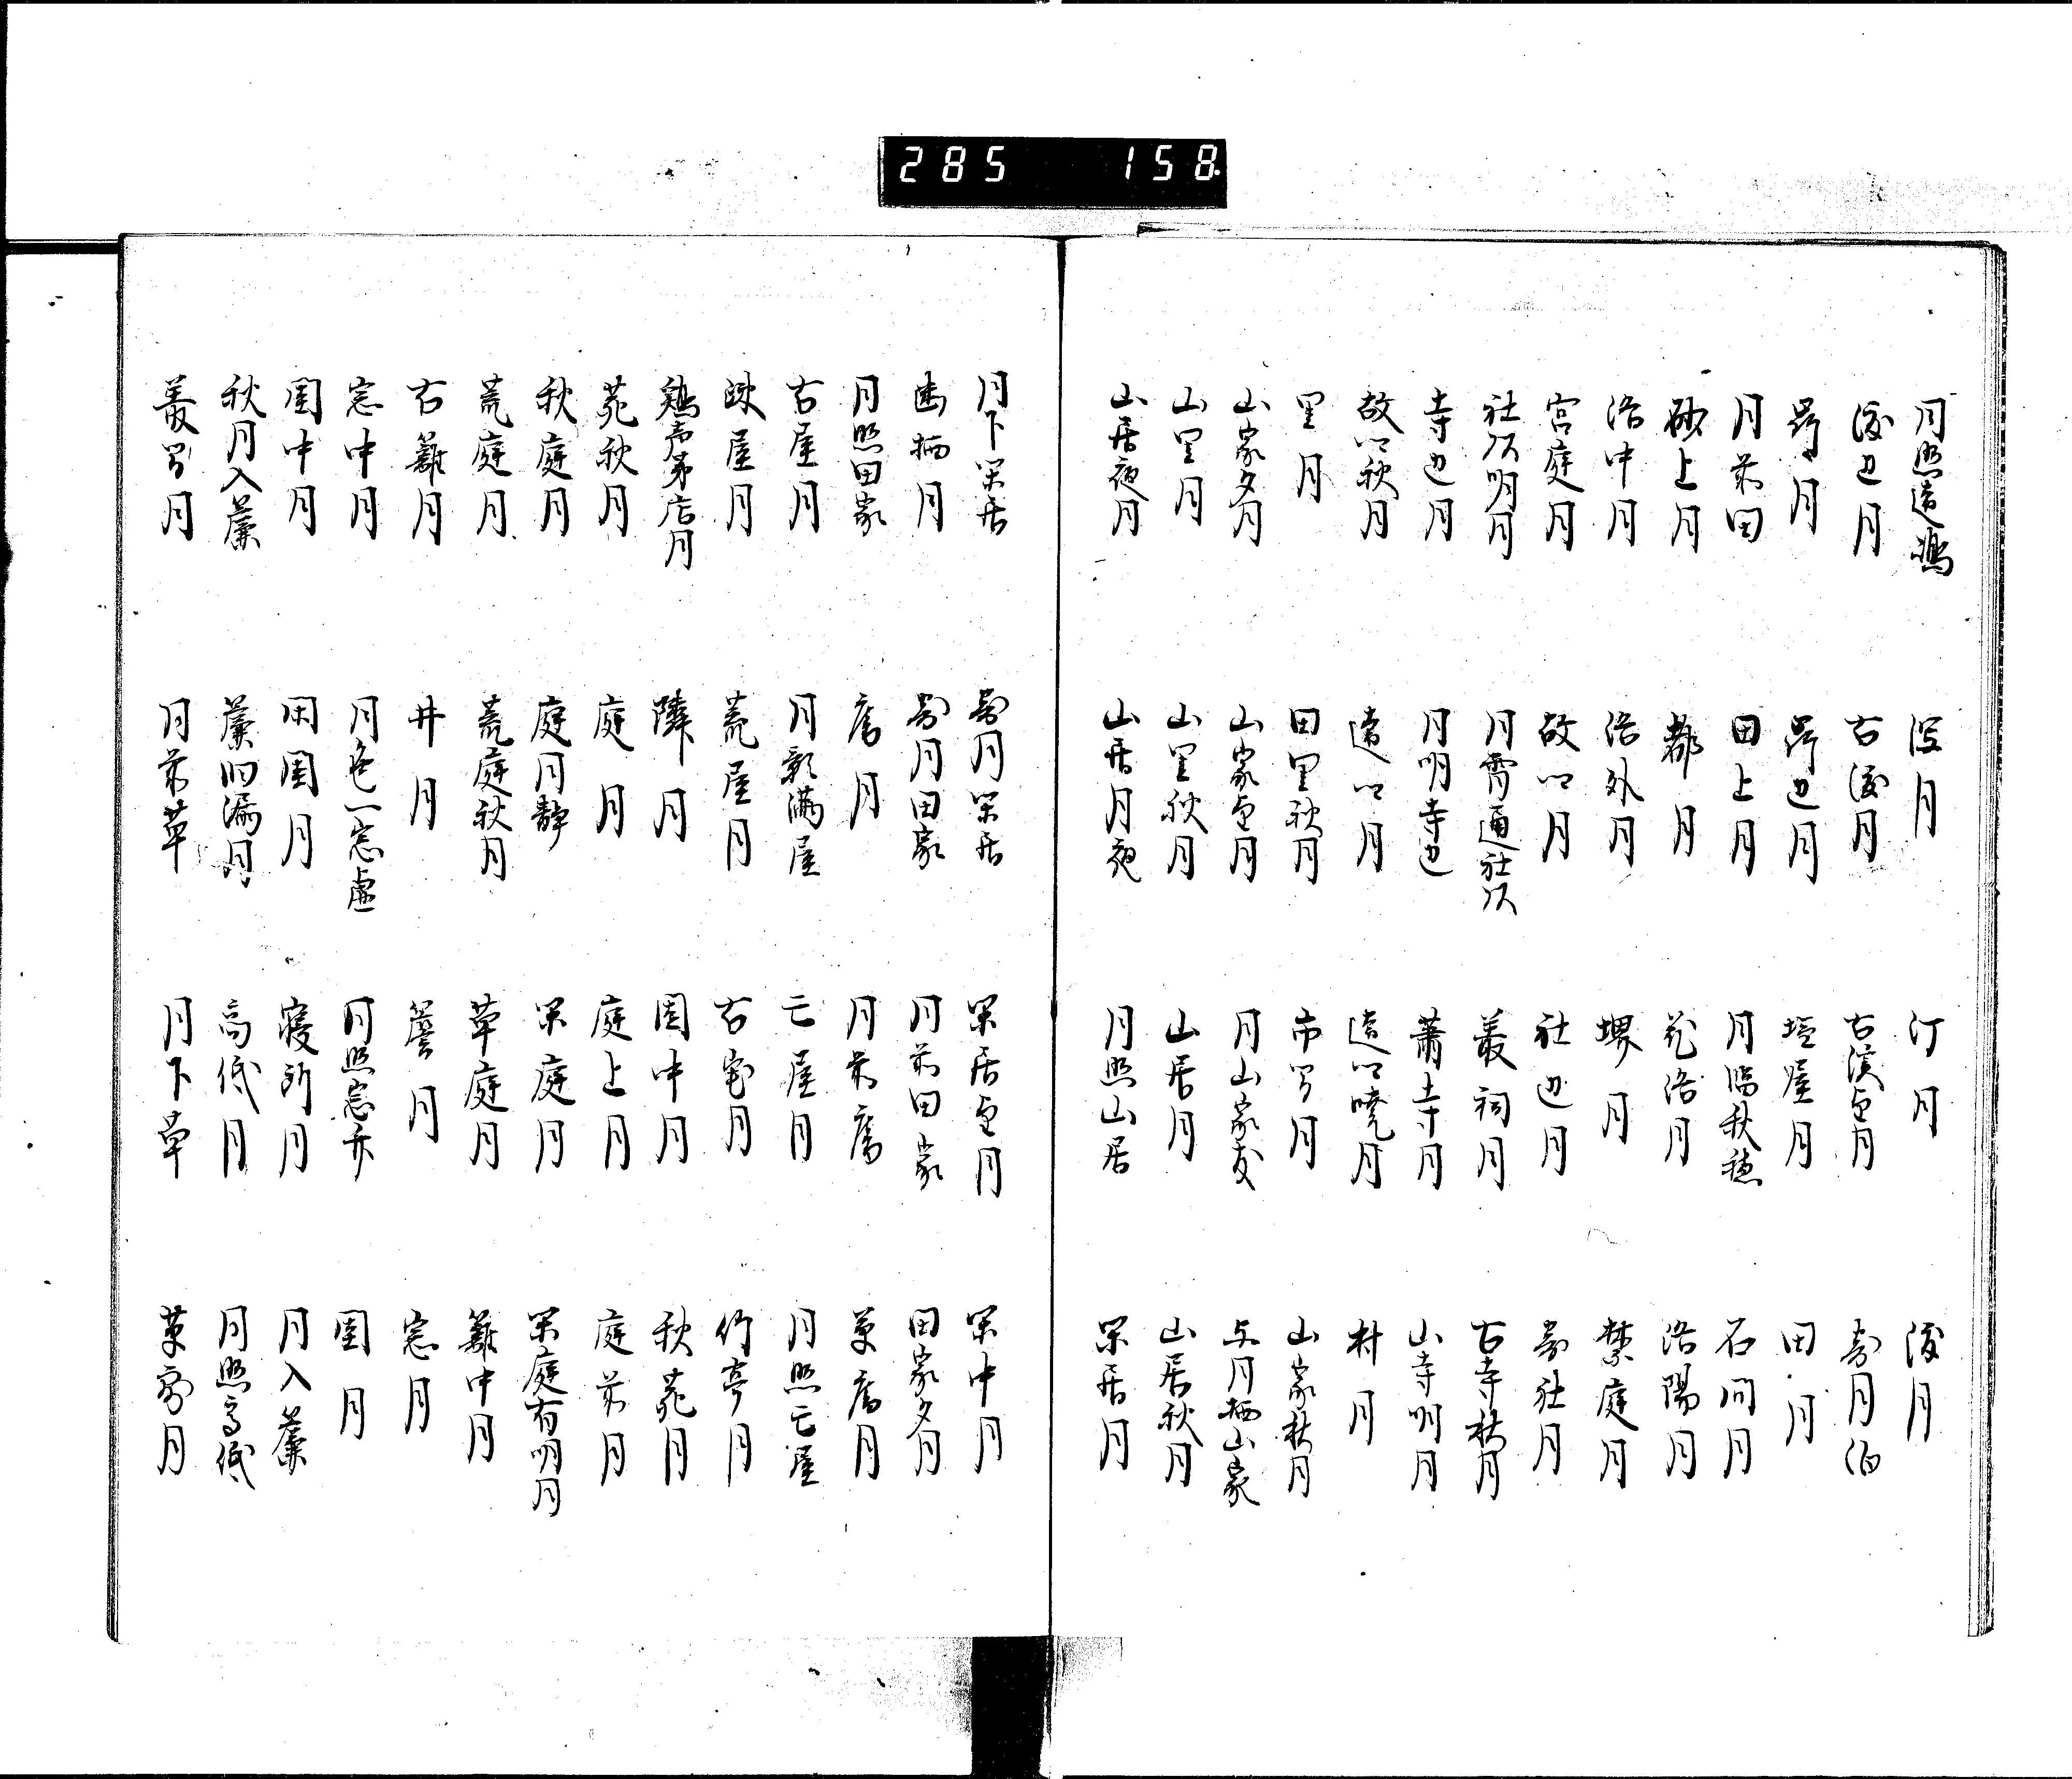 月照遠嶋　月　汀月　渡月
渡辺月　古渡月　古渡望月　月泊
岸月　岸辺月　塩屋月　田月
月前田　田上月　月臨秋穂　石間月
砂上月　都月　花洛月　洛陽月
洛中月　洛外月　堺月　禁庭月
宮庭月　故郷月　社辺月　社月
社頭明月　月霄通社頭　叢祠月　古寺秋月
寺辺月　月明寺辺　蕭寺月　山寺明月
故郷秋月　遠郷月　遠郷暁月　村月
里月　田里秋月　市間月　山家秋月
山家夕月　山家望月　月山家友　与月栖山家
山里月　山里秋月　山居月　山居秋月
山居夜月　山居月夜　月照山居　閑居月
月下閑居　月閑居　閑居望月　閑中月
幽栖月　月田家　月前田家　田家夕月
月照田家　庵月　月前庵　草庵月
古屋月　月影満屋　亡屋月　月照亡屋
疎屋月　荒屋月　古宅月　竹亭月
鶏声茅店月　隣月　園中月　秋苑月
苑秋月　庭月　庭上月　庭前月
秋庭月　庭月静　閑庭月　閑庭有明月
荒庭月　荒庭秋月　草庭月　籬中月
古籬月　井月　簷月　窓月
窓中月　月色一窓虚　月照窓　閨月
閨中月　閑閨月　寝所月　月入簾
秋月入簾　簾漏月　高低月　月照高低
叢間月　月前草　月下草　草月
285 158